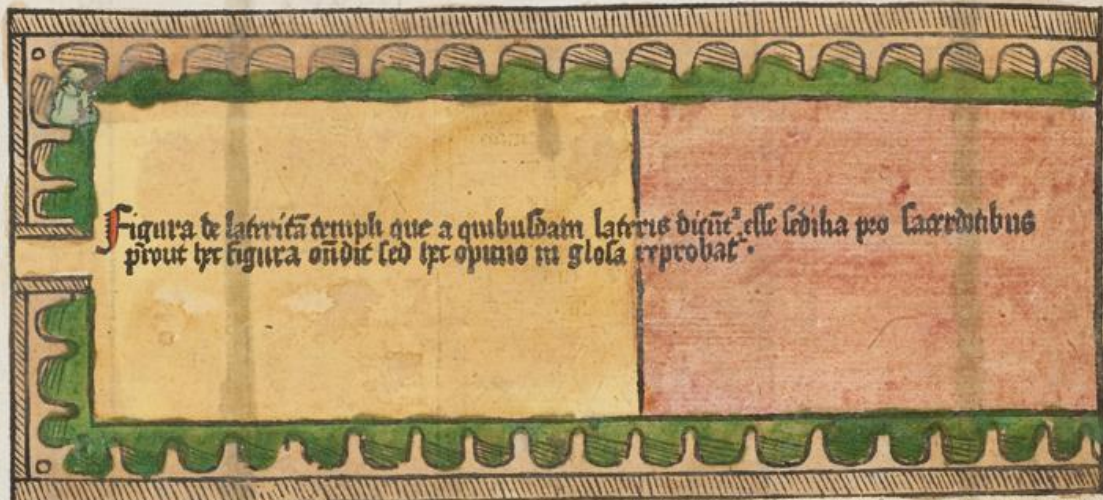 Figura de laterítã templi que a quibusdam lateris dicũtᷣ esse sedilia pro sacerdotibus
prout hec figura oñdit sed hec opinio in glosa reprobatᷣ.